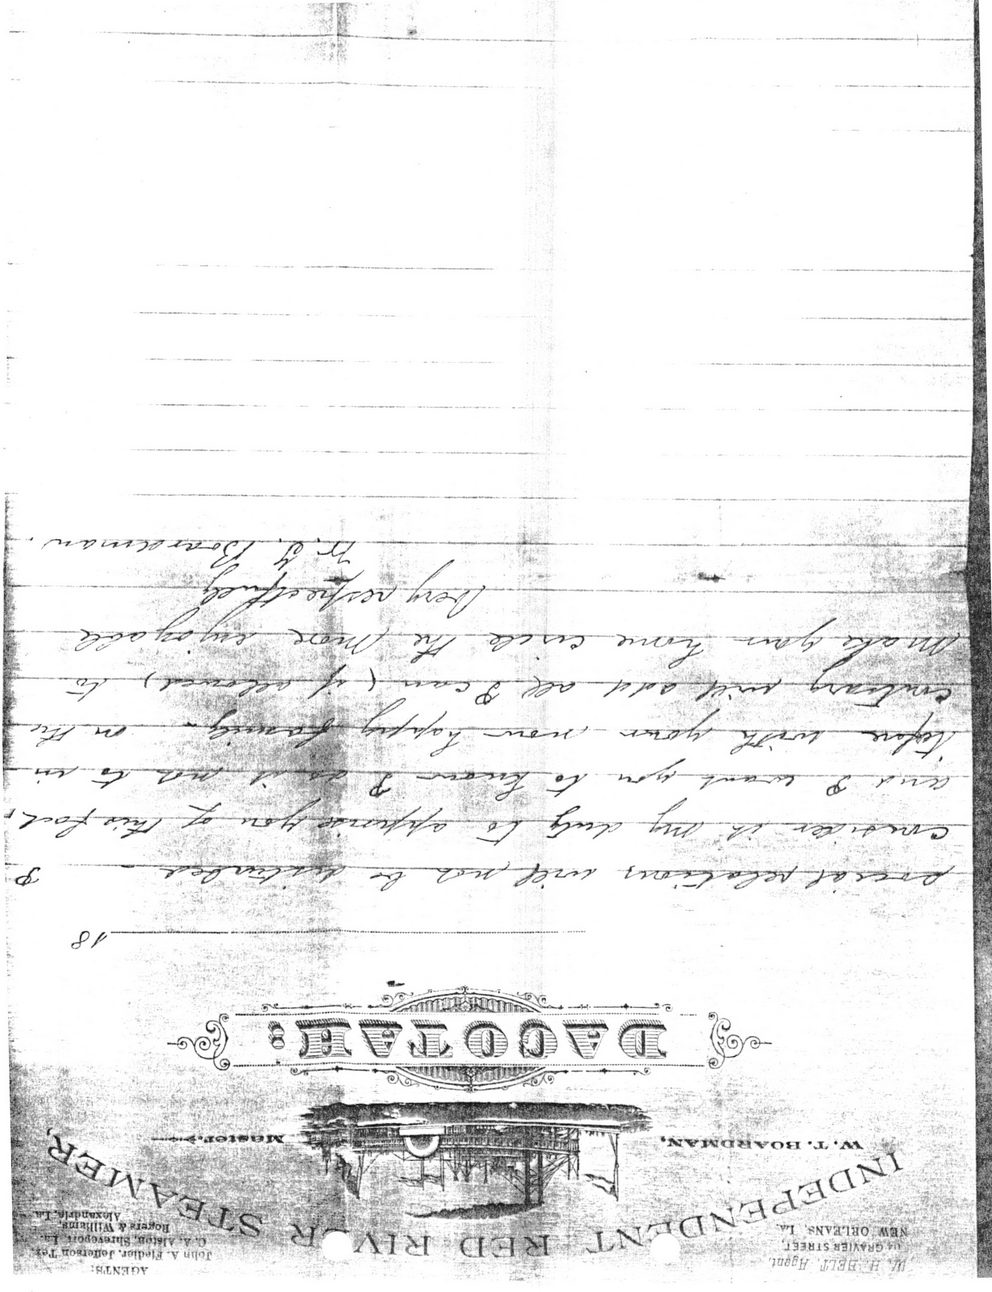 W. H. BELT Agent,
114 GRAVIER STREET,
NEW ORLEANS, La.
AGENTS:
John A. Fiedler, Jefferson Tex.
C. A. Alston, Shreveport, La.
Rogers & Williams,
Alexandria, La.
INDEPENDENT RED RIVER STEAMER,
W. T. BOARDMAN, Master.
DACOTAH:
18
social relations will not be disturbed - I
consider it my duty to apprise you of this fact,
and I want you to know I do it not to in
tefere with your now happy family - on the
contrary will add all I can (if allowed) to
make your home circle the more enjoyable
Very respectfully
W. T. Boardman.